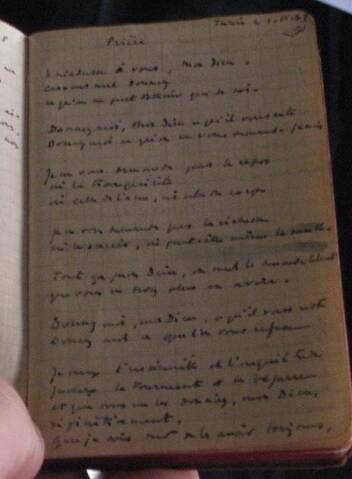 Tunis
Prière
m'adresse à vous, mon Dieu,
car vous seul donnez
ce qu'on ne peut obtenir que de soi.
Donnez-moi, mon Dieu ce qu'il vous reste
Donnez-moi ce qu'on ne vous demande jamais
Je ne vous demande pas le repos
ni la tranquillité
ni celle de l'âme, ni celle du corps
Je ne vous demande pas la richesse
ni le succès, ni peut-être même la santé.
Tout ça, mon Dieu, on vous le demande tellement
que vous ne devez plus en avoir.
Donnez moi, mon Dieu, ce qu'il vous reste
Donnez moi ce que l'on vous refuse
Je veux l'insécurité et l'inquiétude
Je veux la tourmente et la bagarre
et que vous me les donniez, mon Dieu,
définitivement.
Que je sois sûr de les avoir toujours,